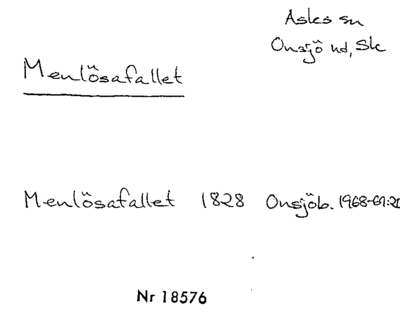 Askes sn
Onsjö hd, Sk
Menlösafallet
Menlösafallet 1828 Onsjöb. 1968-69:20
Nr 18576